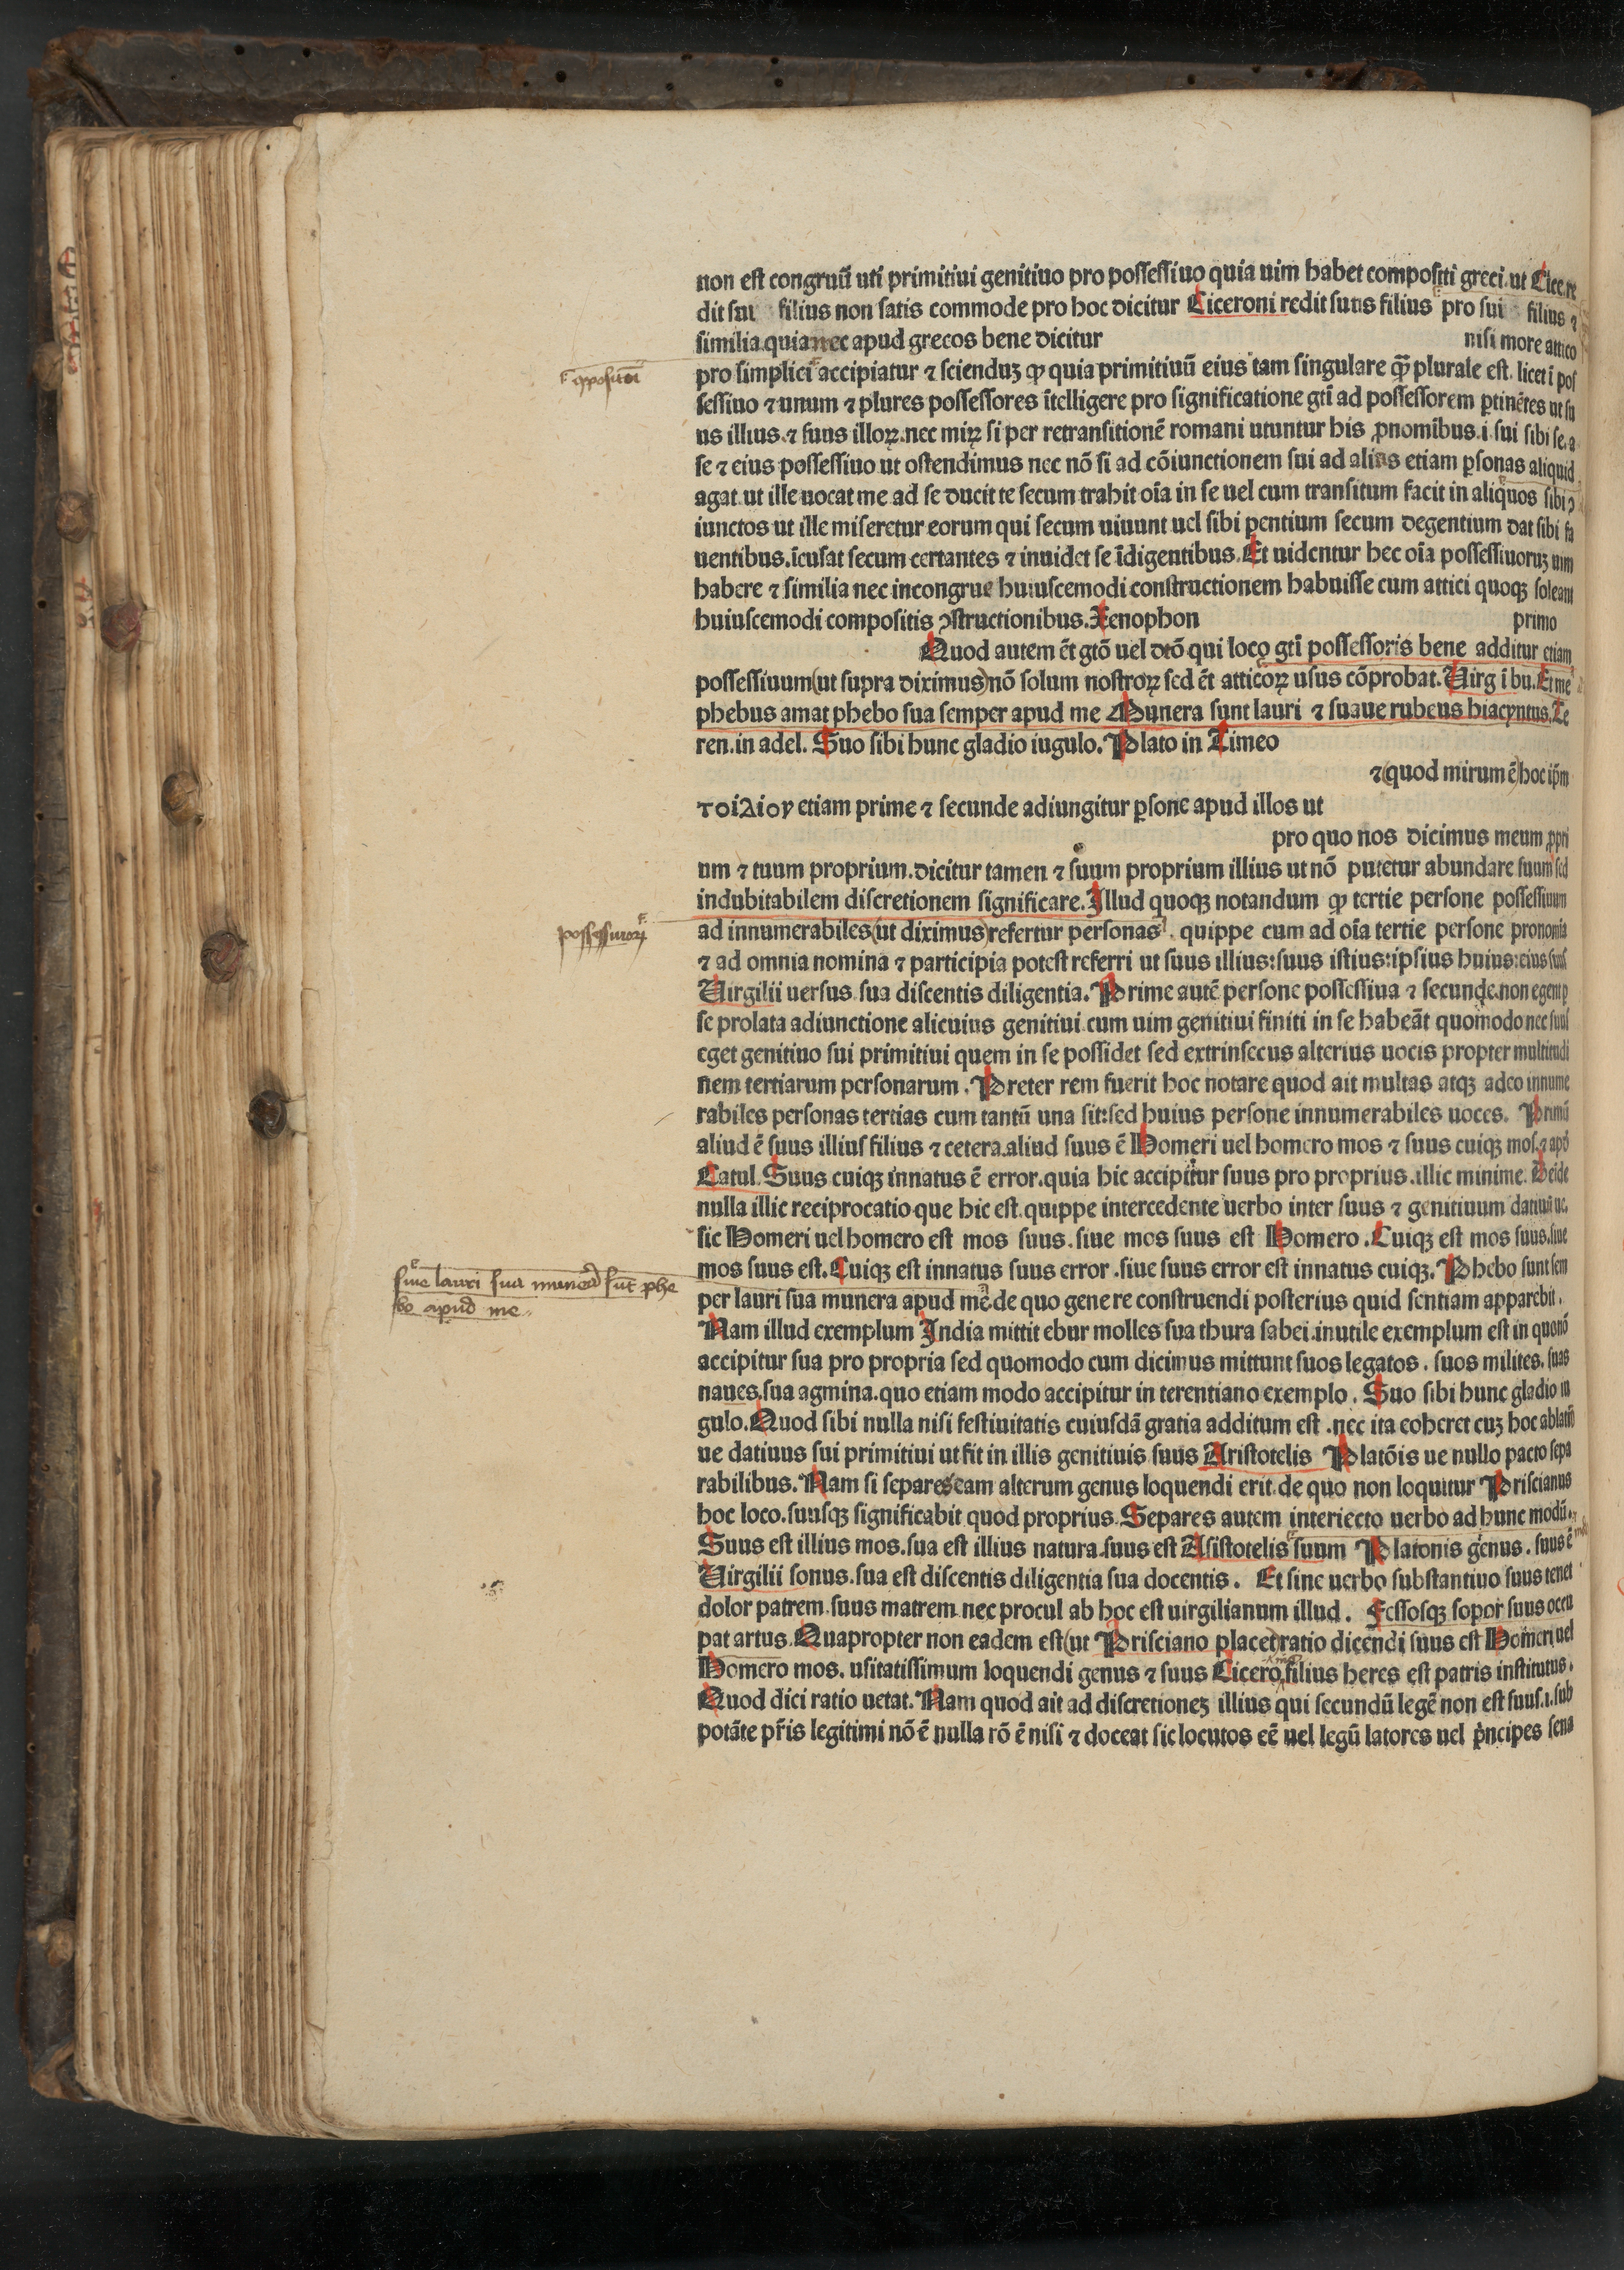 non eſt congruū uti primitiui genitiuo pro poſſeſſiuo quia uim habet compoſiti greci. ut Cice. re
dit ſui filius non ſatis commode pro hoc dicitur Ciceroni redit ſuus filius pro ſui filius ⁊
ſimilia. quia nec apud grecos bene dicitur niſi more attico
pro ſimplici accipiatur ⁊ ſcienduꝫ ꝙ quia primitiuū eius tam ſingulare ꝗ̄ plurale eſt. licet ī poſ
ſeſſiuo ⁊ unum ⁊ plures poſſeſſores ītelligere pro ſignificatione gtī ad poſſeſſorem ꝑtinētes ut ſu
us illius. ⁊ ſuus illoꝝ. nec miꝝ ſi per retranſitionē romani utuntur his ꝓnomibus. i. ſui ſibi ſe. a
ſe ⁊ eius poſſeſſiuo ut oſtendimus nec nō ſi ad cōiunctionem ſui ad alias etiam ꝑſonas aliquid
agat. ut ille uocat me ad ſe ducit te ſecum trahit oīa in ſe uel cum tranſitum facit in aliquos ſibi ꝯ
iunctos ut ille miſeretur eorum qui ſecum uiuunt uel ſibi ꝑentium ſecum degentium dat ſibi fa
uentibus. īcuſat ſecum certantes ⁊ inuidet ſe īdigentibus. Et uidentur hec oīa poſſeſſiuoruꝫ uim
habere ⁊ ſimilia nec incongrue huiuſcemodi conſtructionem habuiſſe cum attici quoqꝫ ſoleant
huiuſcemodi compoſitis ꝯſtructionibus. Xenophon primo
Quod autem ēt gtō uel dtō qui loco gtī poſſeſſoris bene additur etiam
poſſeſſiuum (ut ſupra diximus) nō ſolum noſtroꝝ ſed ēt atticoꝝ uſus cōprobat. Uirg ī bu. Et me
phebus amat phebo ſua ſemper apud me Munera ſunt lauri ⁊ ſuaue rubeus hiacyntus. Te
ren. in adel. Suo ſibi hunc gladio iugulo. Plato in Timeo
⁊ (quod mirum ē) hoc ip̄m
τοίΔίου etiam prime ⁊ ſecunde adiungitur ꝑſone apud illos ut
pro quo nos dicimus meum ꝓpri
um ⁊ tuum proprium. dicitur tamen ⁊ ſuum proprium illius ut nō putetur abundare ſuum ſed
indubitabilem diſcretionem ſignificare. Illud quoqꝫ notandum ꝙ tertie perſone poſſeſſiuum
ad innumerabiles (ut diximus) refertur perſonas. quippe cum ad oīa tertie perſone pronomīa
⁊ ad omnia nomina ⁊ participia poteſt referri ut ſuus illius: ſuus iſtius: ipſius huius: eius ſuus
Uirgilii uerſus. ſua diſcentis diligentia. Prime autē perſone poſſeſſiua ⁊ ſecunde. non egent ꝑ
ſe prolata adiunctione alicuius genitiui cum uim genitiui finiti in ſe habeāt quomodo nec ſuus
eget genitiuo ſui primitiui quem in ſe poſſidet ſed extrinſecus alterius uocis propter multitudi
nem tertiarum perſonarum. Preter rem fuerit hoc notare quod ait multas atqꝫ adeo innume
rabiles perſonas tertias cum tantū una ſit: ſed huius perſone innumerabiles uoces. Primū
aliud ē ſuus illiuſ filius ⁊ cetera. aliud ſuus ē Homeri uel homero mos ⁊ ſuus cuiqꝫ moſ. ⁊ apō
Catul. Suus cuiqꝫ innatus ē error. quia hic accipitur ſuus pro proprius. illic minime. Deīde
nulla illic reciprocatio que hic eſt. quippe intercedente uerbo inter ſuus ⁊ genitiuum datiuū ue.
ſic Homeri uel homero eſt mos ſuus. ſiue mos ſuus eſt Homero. Cuiqꝫ eſt mos ſuus. ſiue
mos ſuus eſt. Cuiqꝫ eſt innatus ſuus error. ſiue ſuus error eſt innatus cuiqꝫ. Phebo ſunt ſem
per lauri ſua munera apud me. de quo genere conſtruendi poſterius quid ſentiam apparebit.
Nam illud exemplum India mittit ebur molles ſua thura ſabei. inutile exemplum eſt in quo nō
accipitur ſua pro propria ſed quomodo cum dicimus mittunt ſuos legatos. ſuos milites. ſuas
naues. ſua agmina. quo etiam modo accipitur in terentiano exemplo. Suo ſibi hunc gladio iu
gulo. Quod ſibi nulla niſi feſtiuitatis cuiuſdā gratia additum eſt. nec ita coheret cuꝫ hoc ablatiō
ue datiuus ſui primitiui ut fit in illis genitiuis ſuus Ariſtotelis Platōis ue nullo pacto ſepa
rabilibus. Nam ſi ſepares eam alterum genus loquendi erit. de quo non loquitur Priſcianus
hoc loco. ſuuſqꝫ ſignificabit quod proprius. Separes autem interiecto uerbo ad hunc modū.
Suus eſt illius mos. ſua eſt illius natura. ſuus eſt Aſiſtotelis ſuum Platonis genus. ſuus ē
Uirgilii ſonus. ſua eſt diſcentis diligentia ſua docentis. Et ſine uerbo ſubſtantiuo ſuus tenet
dolor patrem. ſuus matrem. nec procul ab hoc eſt uirgilianum illud. Feſſoſqꝫ ſopor ſuus occu
pat artus. Quapropter non eadem eſt (ut Priſciano placet) ratio dicendi ſuus eſt Homeri uel
Homero mos. uſitatiſſimum loquendi genus ⁊ ſuus Cicero filius heres eſt patris inſtitutus.
Quod dici ratio uetat. Nam quod ait ad diſcretioneꝫ illius qui ſecundū legē non eſt ſuuſ. i. ſub
potāte pr̄is legitimi nō ē nulla rō ē niſi ⁊ doceat ſic locutos eē uel legū latores uel pͥncipes ſena
ꝯpoſitōi
poſſeſſiuoꝝ
ſiue lauri ſua munera ſūt phe
bo apud me